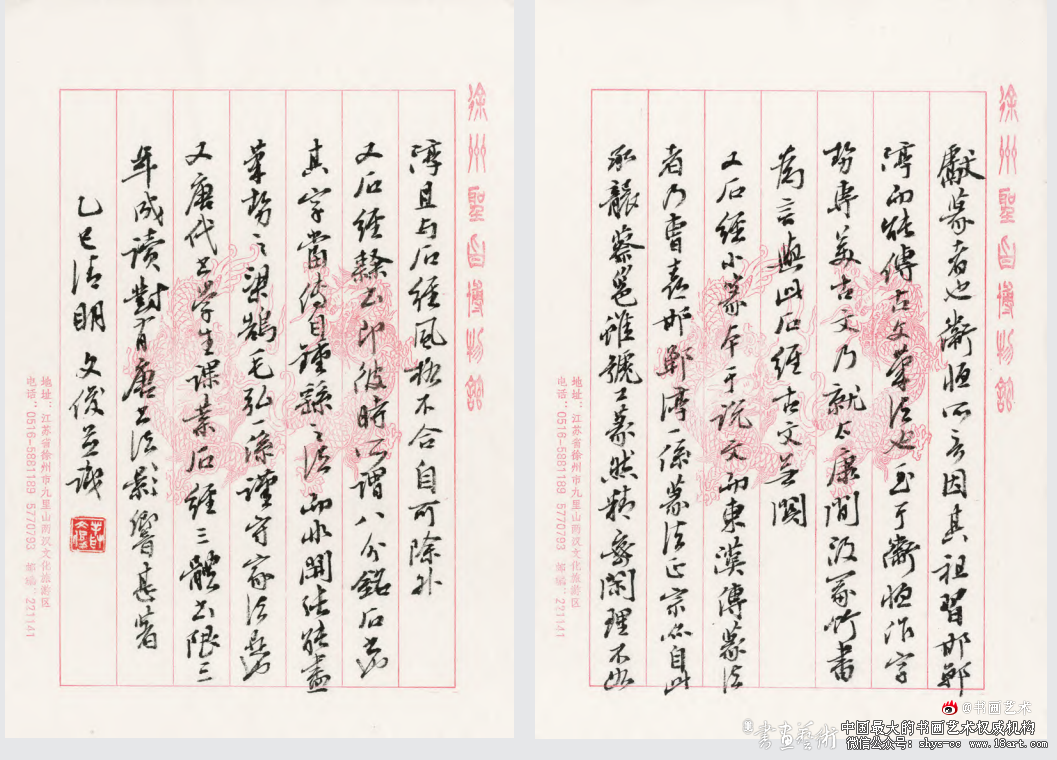 徐州聖旨博物館
獻篆者也衛恒所言因其祖習邯鄲
淳而能傳古文筆法也至于衛恒作字
勢專美古文乃就太康間汲冢竹書
為言與此石經古文無關
又石經小篆本于說文而東漢傳篆法
者乃曹喜邯鄲淳一係篆法正宗亦自此
承襲蔡邕雖號工篆然精密閑理不如
地址：江苏省徐州市九里山两汉文化旅游区
电话：0516-5881189 5770793 邮编：221141
徐州聖旨博物館
淳且与石經風格不合自可除外
又石經隸書即彼時所謂八分銘石書
其字當傳自鍾繇之法而 能盡
筆勢之梁鵠毛弘一係謹守家法
又唐代書學生課業石經三體書限三
年成讀對有唐書法影響甚著
乙巳清明 文俊并識
地址：江苏省徐州市九里山两汉文化旅游区
电话：0516-5881189 5770793 邮编：221141
@书画艺术
書畫藝術 中国最大的书画艺术权威机构
微信公众号：shys-cc www.18art.com